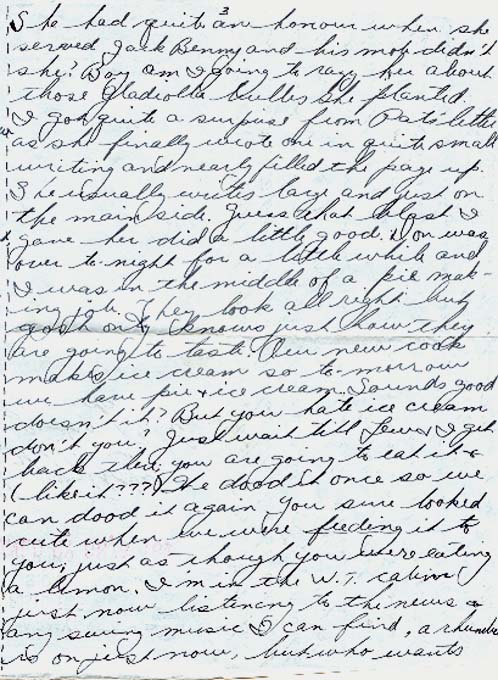 3
She had quite an honour when she
served Jack Benny and his mob didn't
she? Boy am I going to razz her about
those Gladiolla bulbs she planted.
I got quite a surprise from Pat's letter
as she finally wrote one in quite small
writing and nearly filled the page up.
She usually writes large and just on
the main side. Guess that blast I
gave her did a little good. Don was
over to-night for a little while and
I was in the middle of a pie mak-
ing job. They look all right but
gosh only knows just how they
are going to taste. Our new cook
makes ice cream so to-morrow
we have pie + ice cream. Sounds good
doesn't it? But you hate ice cream
don't you? Just wait till Lew & I get
back then you are going to eat it +
(like it???) We dood it once so we
can dood it again. You sure looked
cute when we were feeding it to
you, just as though you were eating
a lemon. I'm in the W.T. cabin
just now listening to the news +
any swing music I can find, a rhumba
is on just now, but who wants